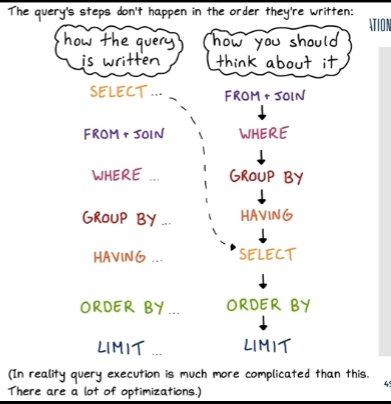 The query's steps don't happen in the order they're written:
ATION
how the query is written
how you should think about it
SELECT ...
FROM + JOIN
WHERE ...
GROUP BY ...
HAVING ...
ORDER BY ...
LIMIT ...
FROM + JOIN
WHERE
GROUP BY
HAVING
SELECT
ORDER BY
LIMIT
(In reality query execution is much more complicated than this.
There are a lot of optimizations.)